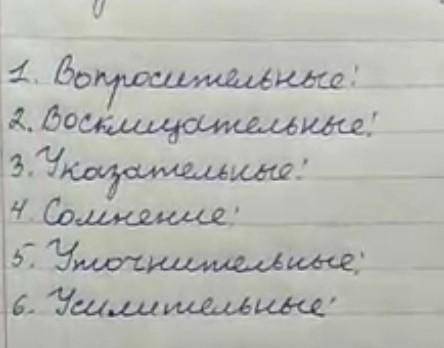 1. Вопросительные:
2. Восклицательные:
3. Указательные:
4. Сомнение:
5. Уточнительные:
6. Усилительные: